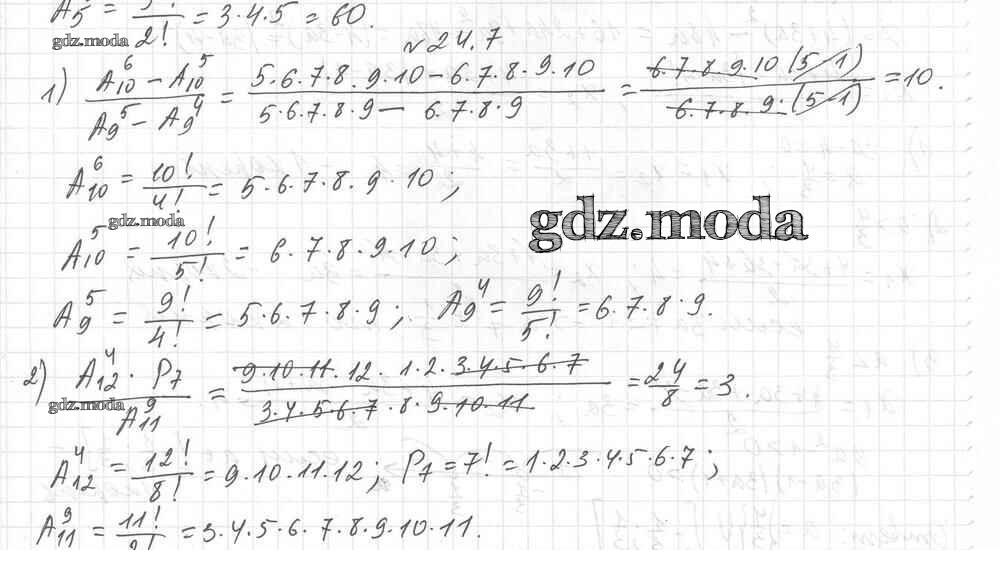 A₅ = 5!/2! = 3·4·5 = 60.
gdz.moda
№24.7
1) (A₁₀⁶ − A₁₀⁵)/(A₉⁵ − A₉⁴) = (5·6·7·8·9·10 − 6·7·8·9·10)/(5·6·7·8·9 − 6·7·8·9) = (6·7·8·9·10 (5−1))/(6·7·8·9·(5−1)) = 10.
A₁₀⁶ = 10!/4! = 5·6·7·8·9·10;
gdz.moda
gdz.moda
A₁₀⁵ = 10!/5! = 6·7·8·9·10;
A₉⁵ = 9!/4! = 5·6·7·8·9; A₉⁴ = 9!/5! = 6·7·8·9.
2) (A₁₂⁴ · P₇)/A₁₁⁹ = (9·10·11·12·1·2·3·4·5·6·7)/(3·4·5·6·7·8·9·10·11) = 24/8 = 3.
gdz.moda
A₁₂⁴ = 12!/8! = 9·10·11·12; P₇ = 7! = 1·2·3·4·5·6·7;
A₁₁⁹ = 11!/2! = 3·4·5·6·7·8·9·10·11.